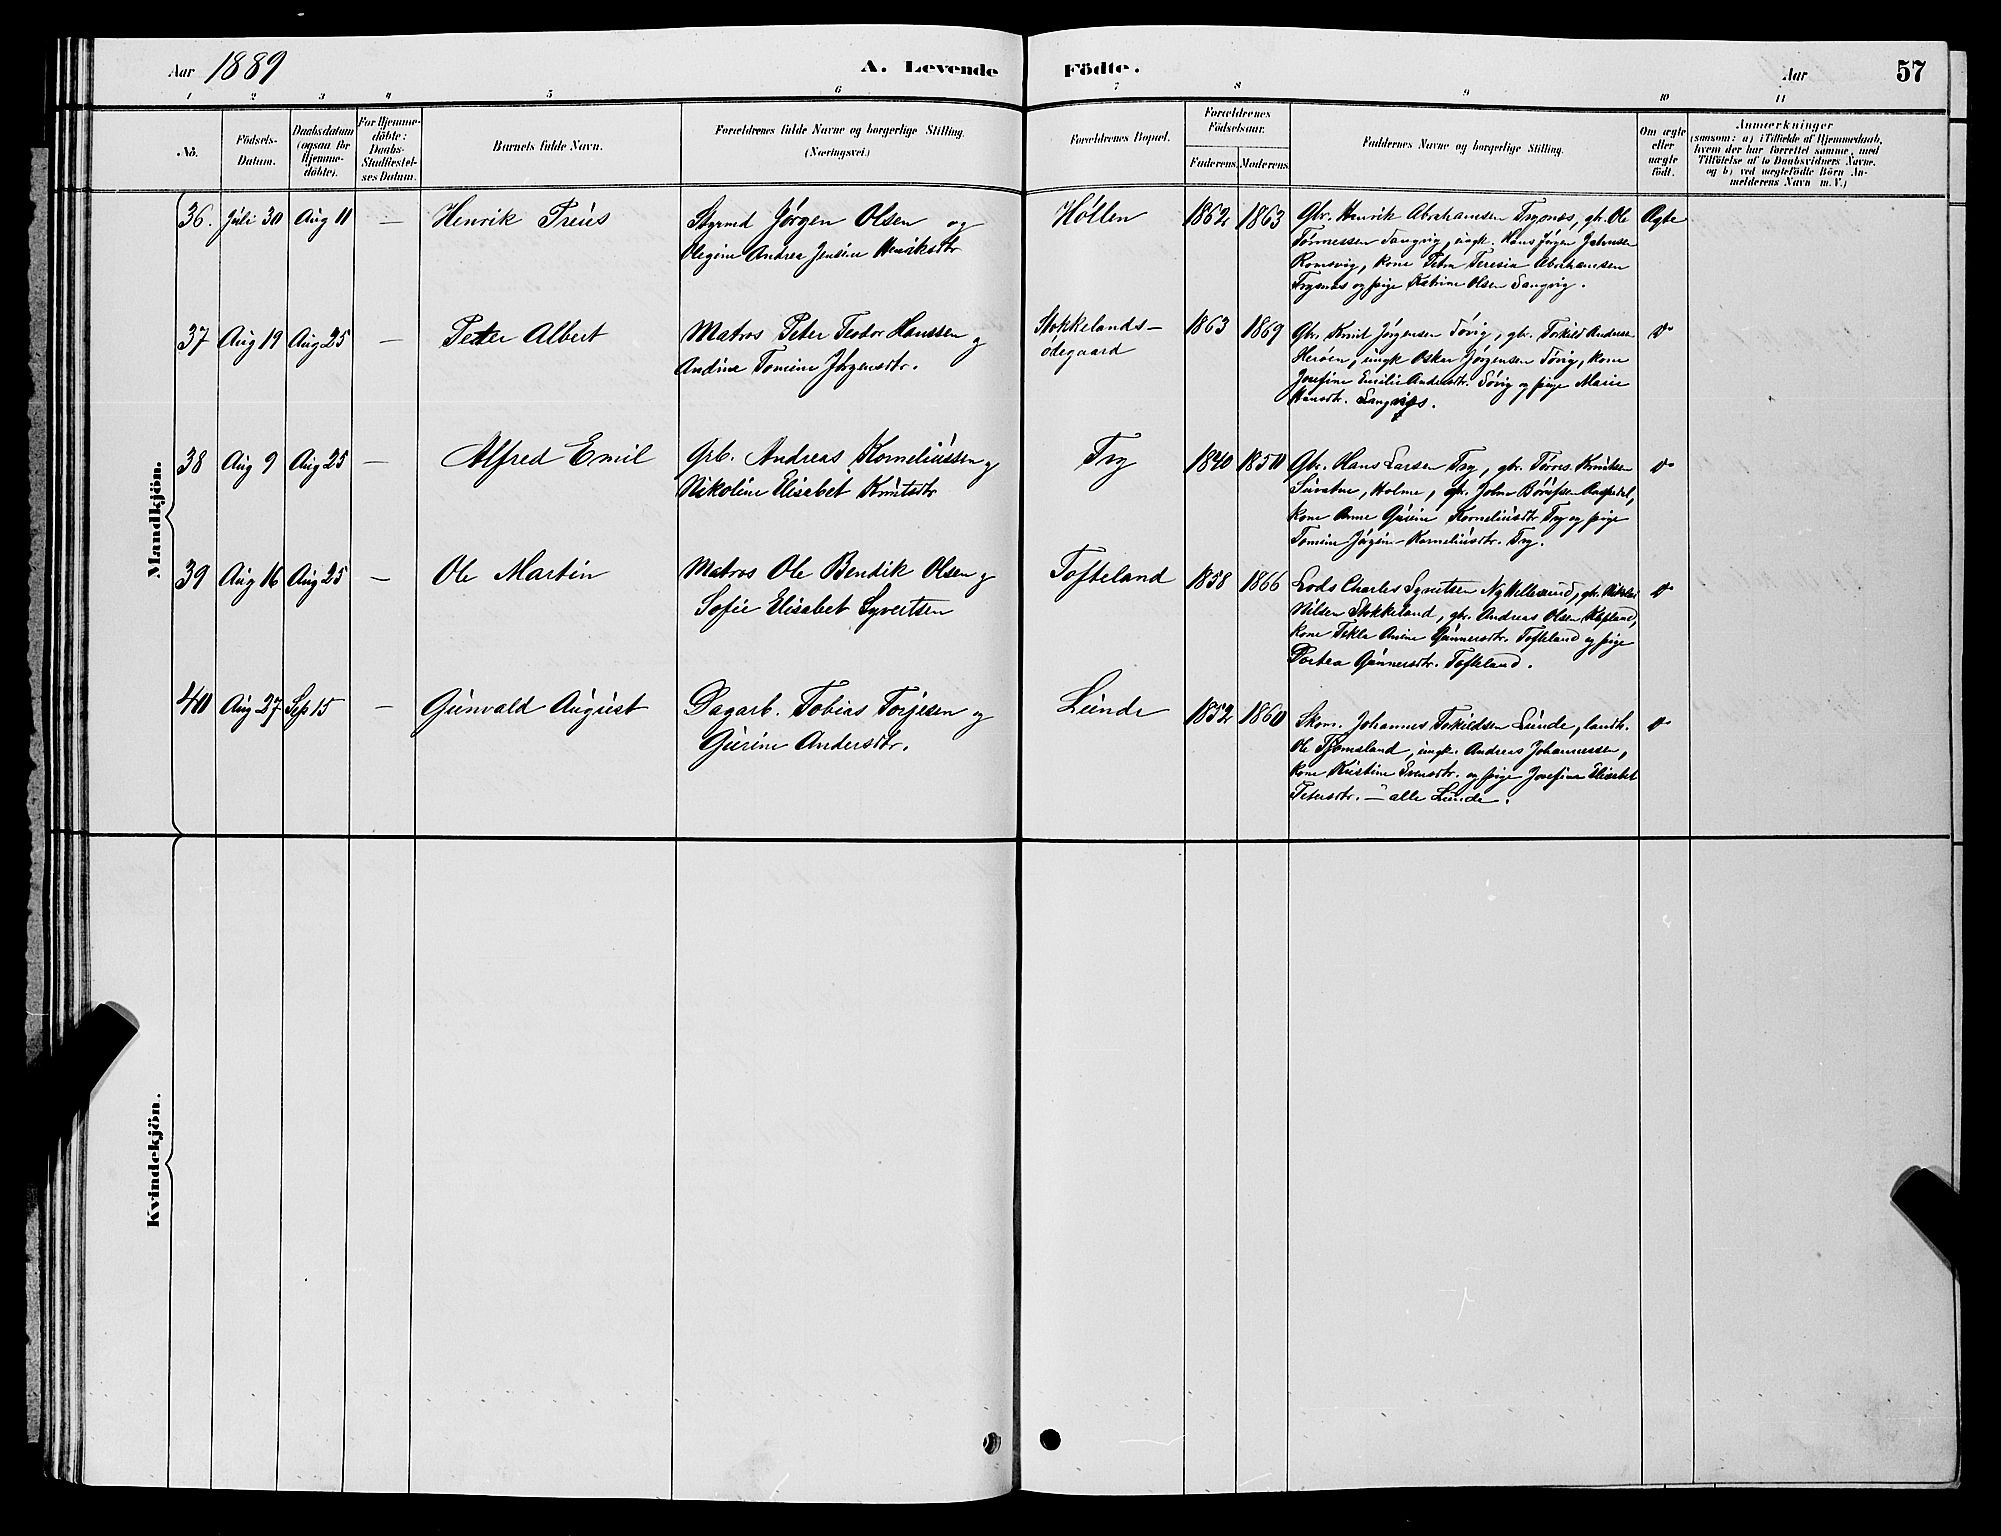 Aar 1889 A. Levende Födte. Aar 57
1 2 3 4 5 6 7 8 9 10 11
No.
Födsels-
Datum.
Daabsdatum
(ogsaa for
Hjemme-
döbte).
For Hjemme-
döbte:
Daabs-
Stadfæstel-
ses Datum.
Barnets fulde Navn.
Forældrenes fulde Navne og borgerlige Stilling.
(Næringsvei.)
Forældrenes Bopæl.
Forældrenes
Födselsaar.
Faderens. Moderens.
Faddernes Navne og borgerlige Stilling.
Om ægte
eller
uægte
födt.
Anmærkninger
(saasom: a) i Tilfælde af Hjemmedaab,
hvem der har forrettet samme, med
Tilföielse af to Daabsvidners Navne,
og b) ved uægtefödte Börn An-
melderens Navn m. V.)
Mandkjön.
36. Juli 30 Aug 11 — Henrik Treus
Styrmd Jørgen Olsen og
Olegine Andrea Jensine Henriksdtr
Høllen 1862 1863
Gbr. Henrik Abrahamsen Trysnæs, gb. Ole
Tønnessen Langvig, ungk. Hans Jørgen Jahnsen
Romsvig, kone Petra Teresia Abrahamsen
Trysnæs og pige Katrine Olsen Langvig.
Ægte
37 Aug 19 Aug 25 — Peter Albert
Matros Peter Teodor Hanssen og
Andine Tomine Jørgensdtr.
Stokkelands-
ødegaard
1863 1869
Gbr. Kornel Jørgensen Søvig, gbr. Torkild Andersen
Herøen, ungk Oskar Jørgensen Søvig, kone
Josefine Emilie Andersdtr. Søvig og pige Marie
Hansdtr. Langnes.
do
38 Aug 9 Aug 25 — Alfred Emil
Grb. Andreas Korneliussen og
Nikoline Elisabet Knutsdtr
Try 1840 1850
Gbr. Hans Larsen Try, gbr. Tørres Knutsen
Holme, gbr. John
kone Anne Gurine Korneliusdtr Try og pige
Tomine Jørgine Korneliusdtr. Try.
do
39 Aug 16 Aug 25 — Ole Martin
Matros Ole Bendik Olsen og
Sofie Elisabet Syvertsen
Tofteland 1858 1866
Lods Charles Syvertsen Ny Hellesund, gbr. Nikolai
Nilsen Stokkeland, gbr. Andreas Olsen
kone Tekla Anine Gunnersdtr. Tofteland og pige
Dortea Gunnersdtr. Tofteland.
do
40 Aug 27 Sep 15 — Gunvald August
Dagarb. Tobias Torjesen og
Gurine Andersdtr.
Lunde 1852 1860
Skom. Johannes Torkildsen Lunde, landh.
Ole Tjomsland, ungk. Andreas Johannessen,
kone Kristine Svensdtr. og pige Josefine Elisabet
Petersdtr. — alle Lunde.
do
Kvindekjön.